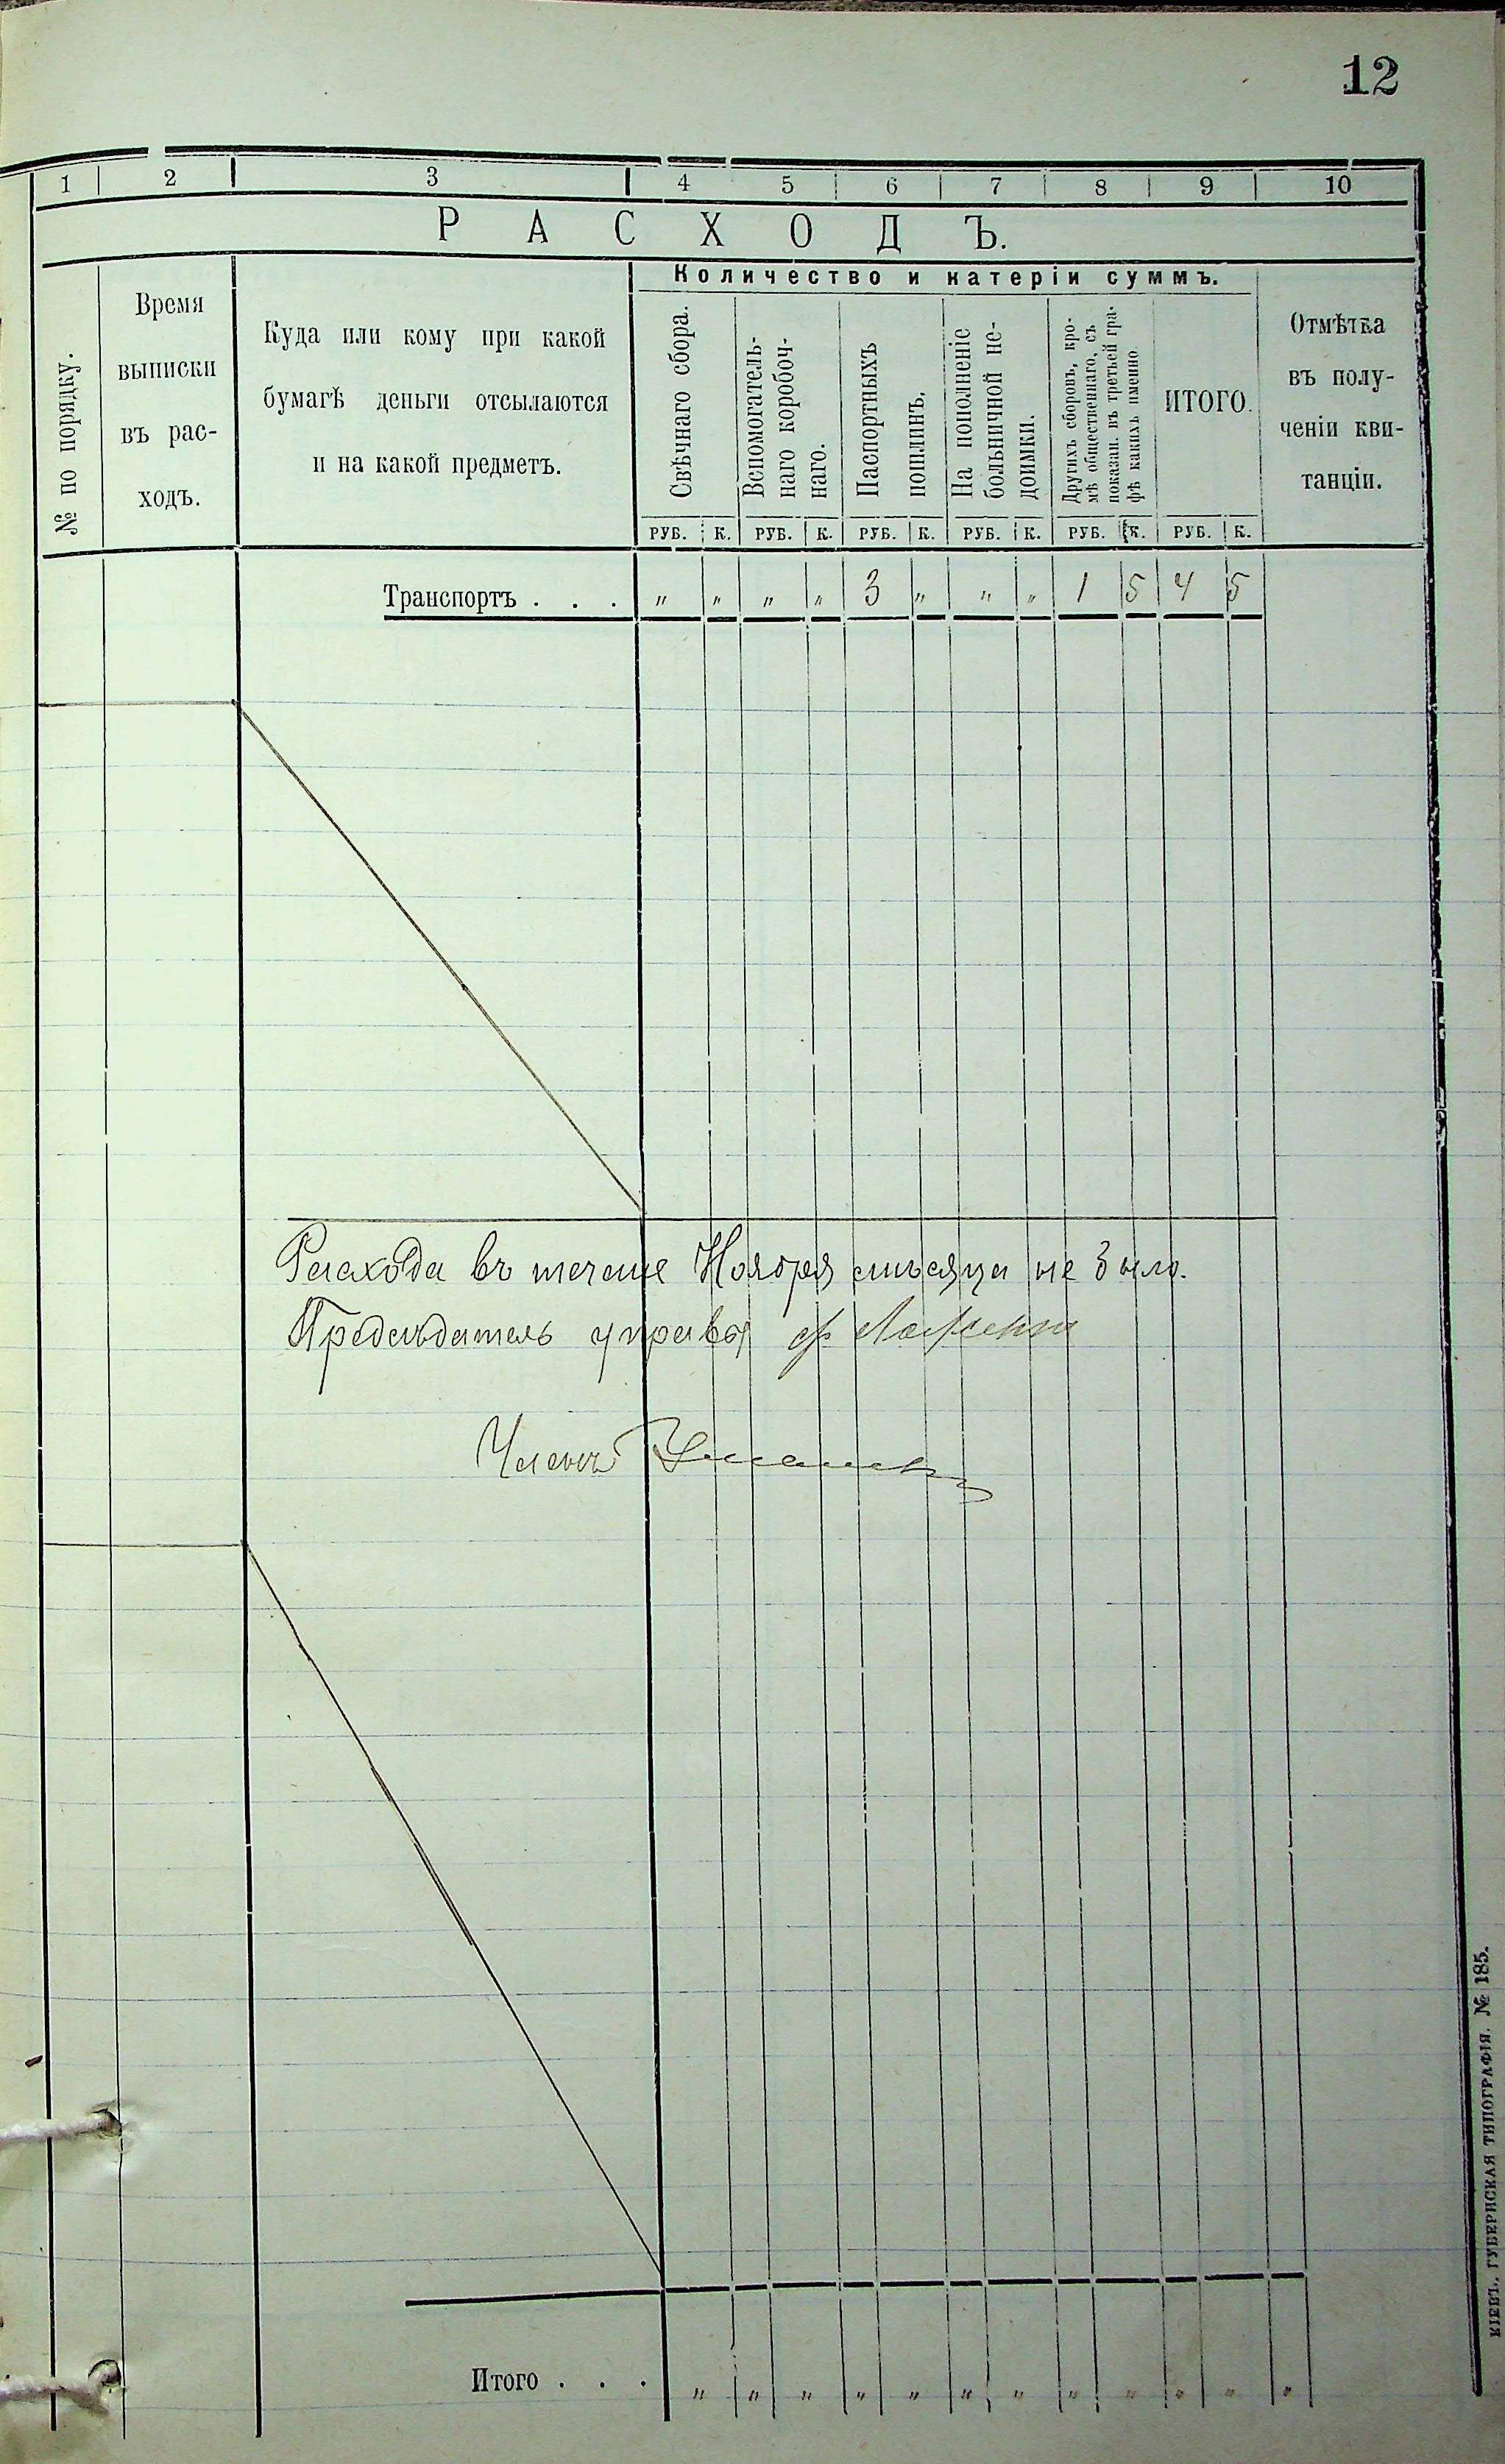 12
1 2 3 4 5 6 7 8 9 10
РАСХОДЪ.
№ по порядку.
Время
выписки
въ рас-
ходъ.
Куда или кому при какой
бумагѣ деньги отсылаются
и на какой предметъ.
Количество и катеріи суммъ.
Свѣчнаго сбора.
Вспомогатель-
наго коробоч-
наго.
Паспортныхъ
пошлинъ.
На пополненіе
больничной не-
доимки.
Другихъ сборовъ, кро-
мѣ общественнаго, съ
показан. въ третьей гра-
фѣ какихъ именно
ИТОГО.
Отмѣтка
въ полу-
ченіи кви-
танціи.
РУБ. К. РУБ. К. РУБ. К. РУБ. К. РУБ. К. РУБ. К.
Транспортъ . . . „ „ „ „ 3 „ „ „ 1 5 4 5
Расхода въ течение Ноября мѣсяца не было.
Предсѣдатель управы
Членъ
Итого . . . „ „ „ „ „ „ „ „ „ „ „ „
КІЕВЪ, ГУБЕРНСКАЯ ТИПОГРАФІЯ. № 185.